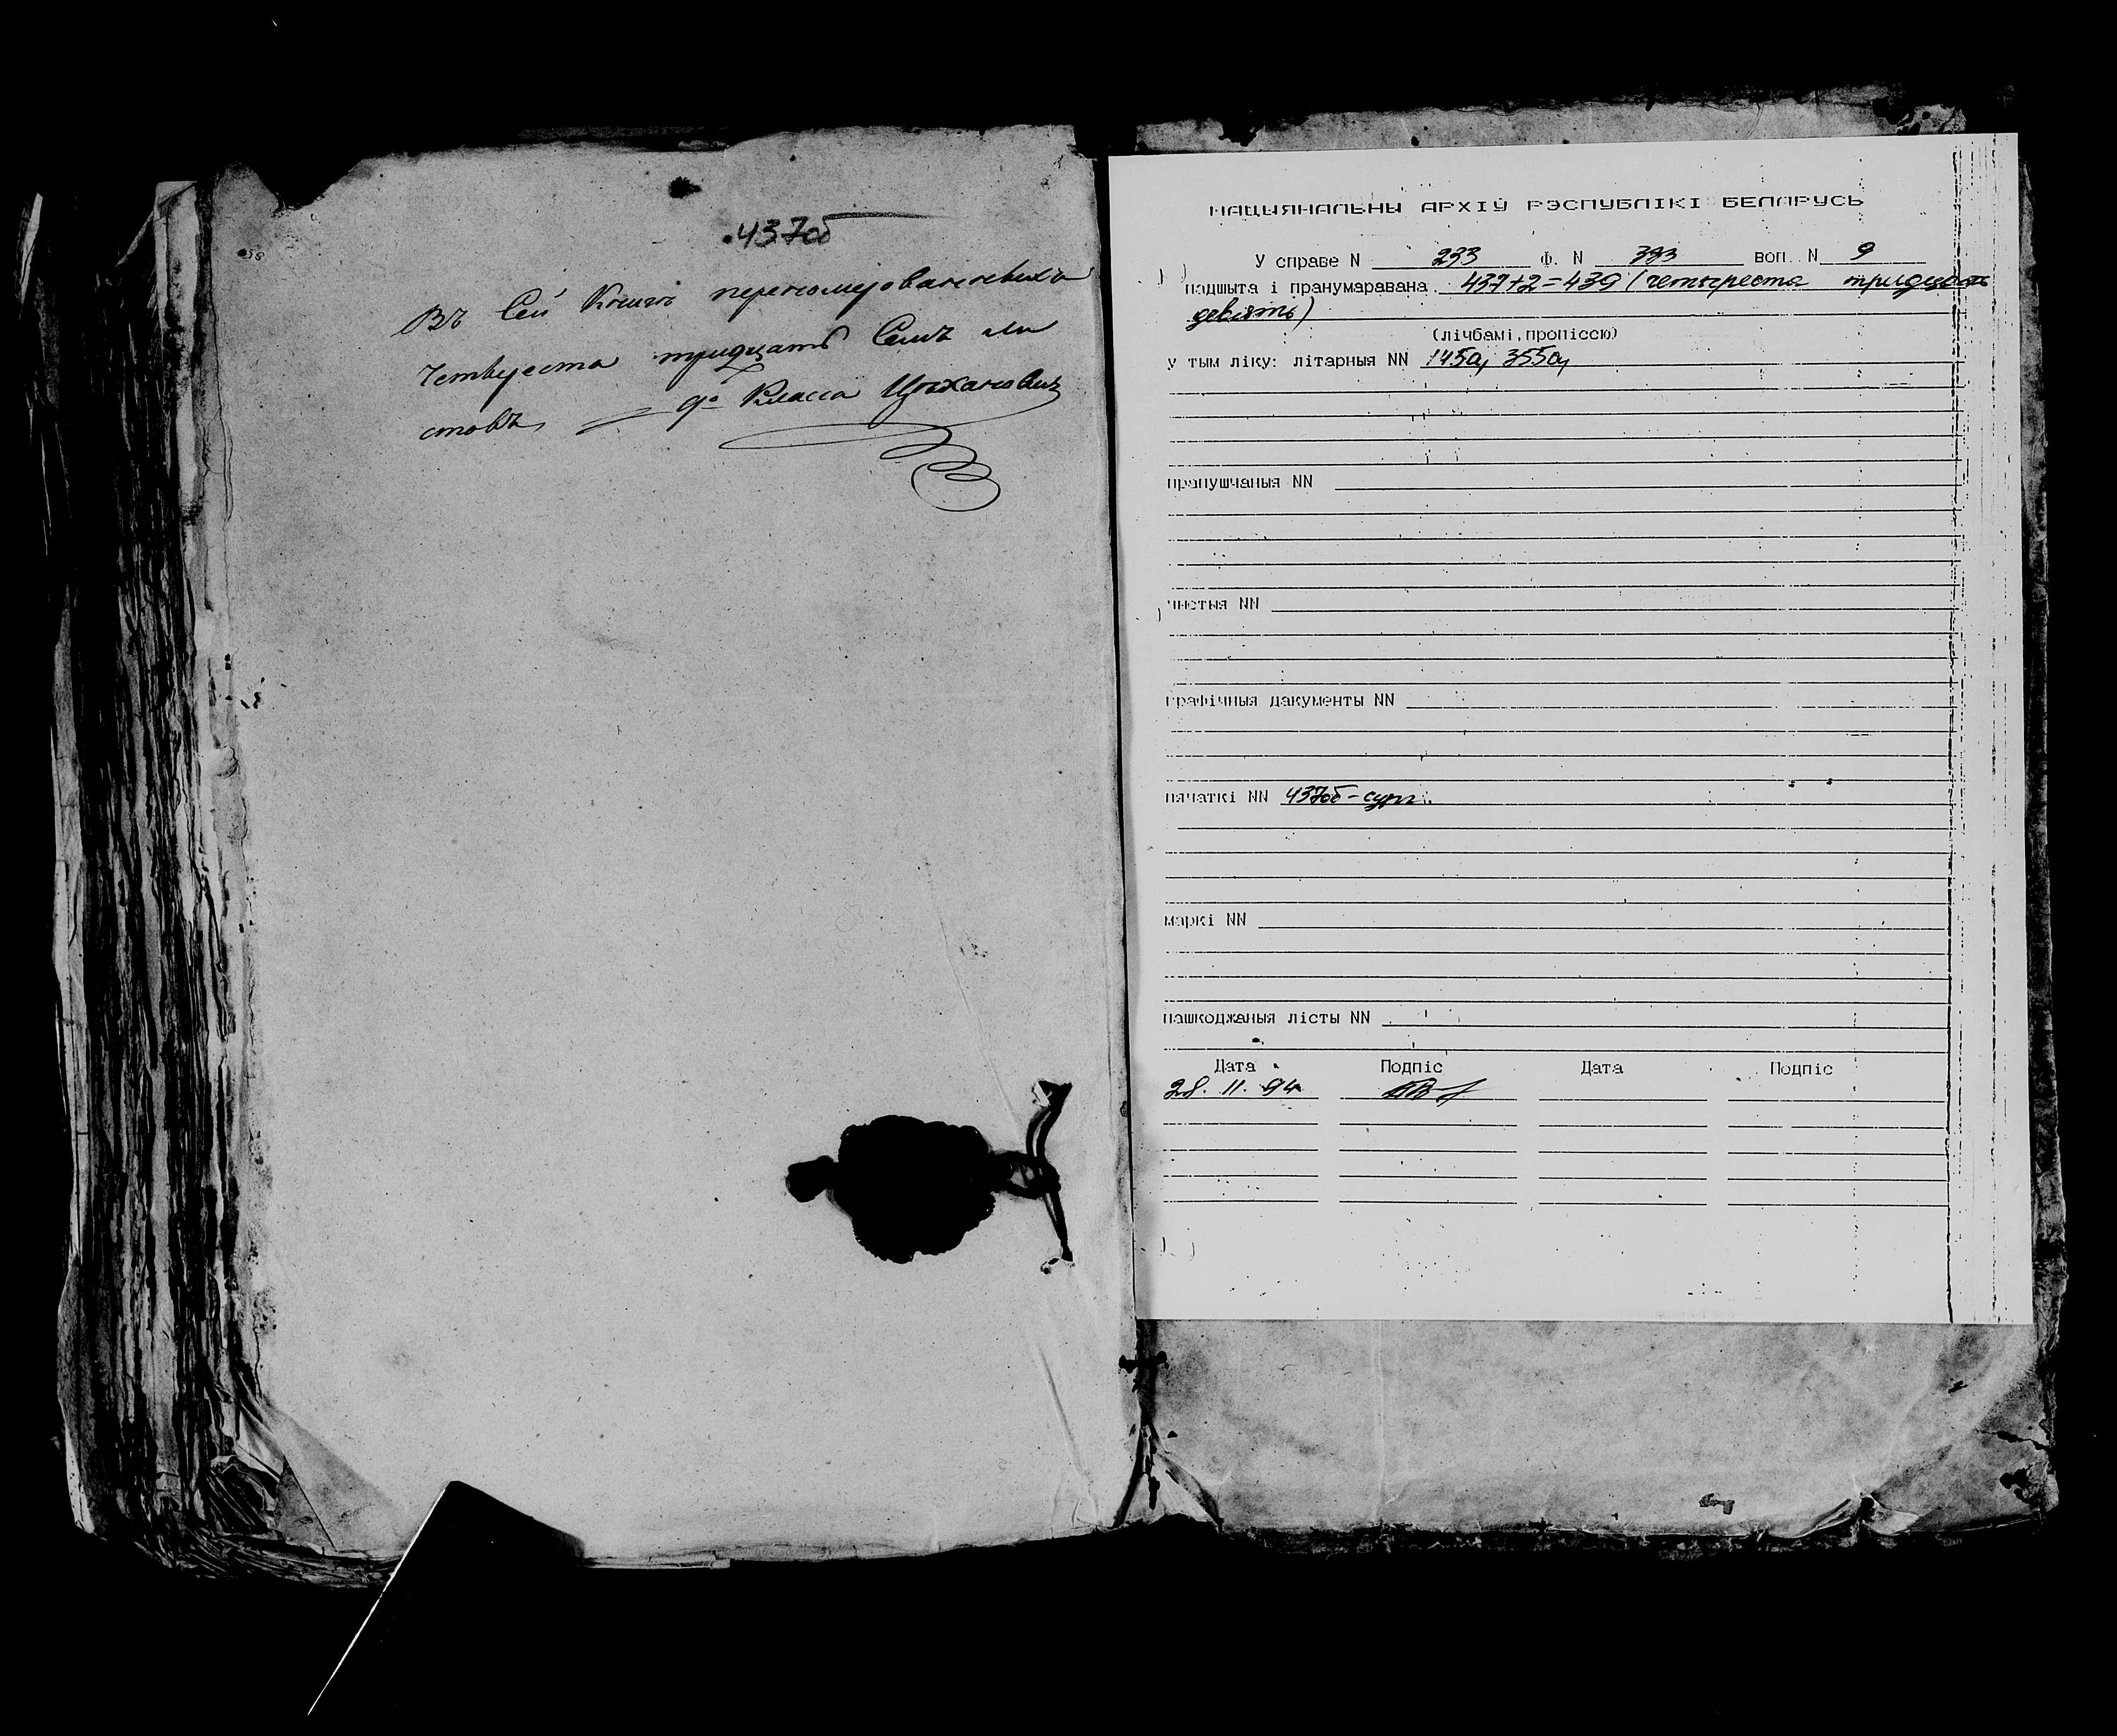 437об
Въ Сей Книгѣ перенумерованныхъ
Четвереста тридцать Семь ли
стовъ, 9го Класса Цѣхановичъ
НАЦЫЯНАЛЬНЫ АРХІЎ РЭСПУБЛІКІ БЕЛАРУСЬ
У справе N 233 Ф. N 333 воп. N 9
падшыта і пранумаравана 437+2=439 (четыреста тридцать
девять)
(лічбамі, пропіссю)
у тым ліку: літарныя NN 145а, 355а,
прапушчаныя NN
чыстыя NN
графічныя дакументы NN
пячаткі NN 437об-сург.
маркі NN
пашкоджаныя лісты NN
Дата Подпіс Дата Подпіс
28. 11. 94